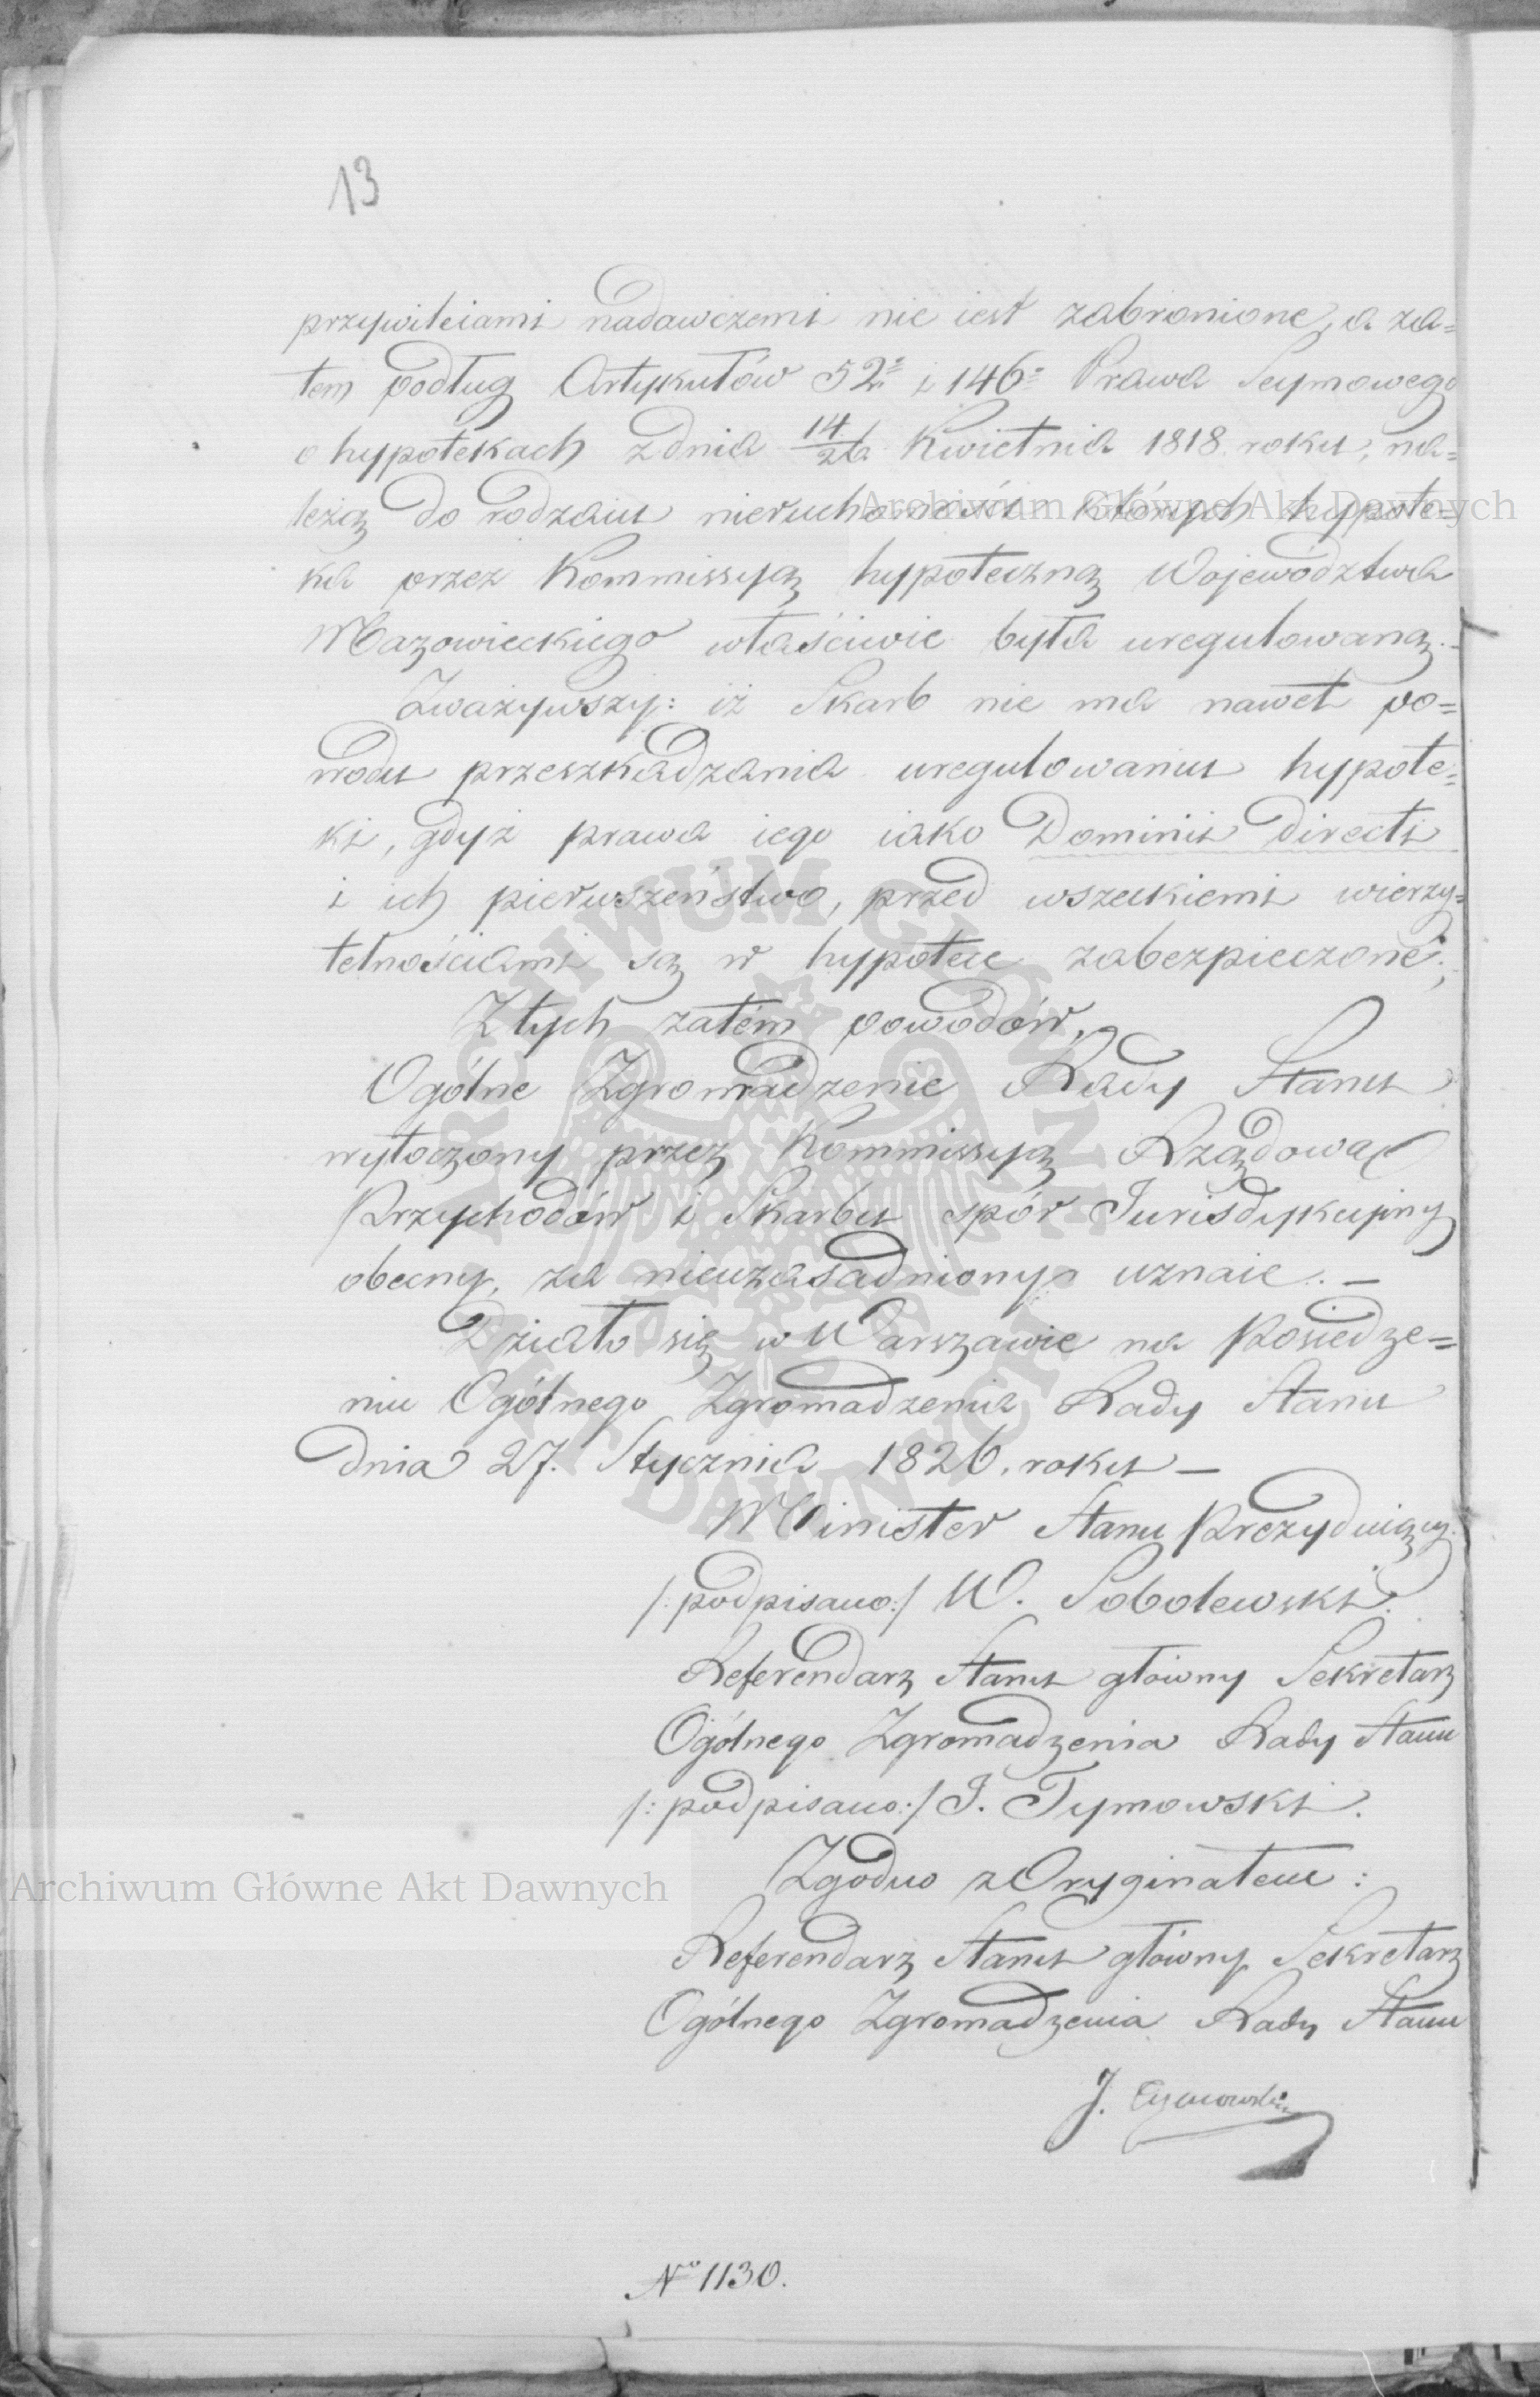 13
przywileiami nadawczemi nie iest zabronione, a za=
tem podług Artykułów 52º i 146º Prawa Seymowego
o hypotekach z dnia 14/26 Kwietnia 1818 roku, na=
leżą do rodzaiu nieruchomości których hypote=
ka przez Kommissyą hypoteczną Województwa
Mazowieckiego właściwie była uregulowaną.
Zważywszy: iż Skarb nie ma nawet po=
wodu przeszkadzania uregulowaniu hypote=
ki, gdyż prawa iego iako Dominii directi
i ich pierwszeństwo, przed wszelkiemi wierzy=
telnościami są w hypotece zabezpieczone;
Z tych zatém powodów,
Ogólne Zgromadzenie Rady Stanu
wytoczony przez Kommissyą Rządową
Przychodów i Skarbu spór Jurisdykcyjny
obecny, za nieuzasadniony uznaie. —
Działo się w Warszawie na Posiedze=
niu Ogólnego Zgromadzenia Rady Stanu
dnia 27. Stycznia 1826. roku —
Minister Stanu Prezyduiący
/: podpisano :/ W. Sobolewski.
Referendarz Stanu główny Sekretarz
Ogólnego Zgromadzenia Rady Stanu
/: podpisano :/ J. Tymowski.
Zgodno z Oryginałem :
Referendarz Stanu główny Sekretarz
Ogólnego Zgromadzenia Rady Stanu
J. Tymowski
Nº 1130.
Archiwum Główne Akt Dawnych
Archiwum Główne Akt Dawnych
ARCHIWUM GŁÓWNE AKT DAWNYCH